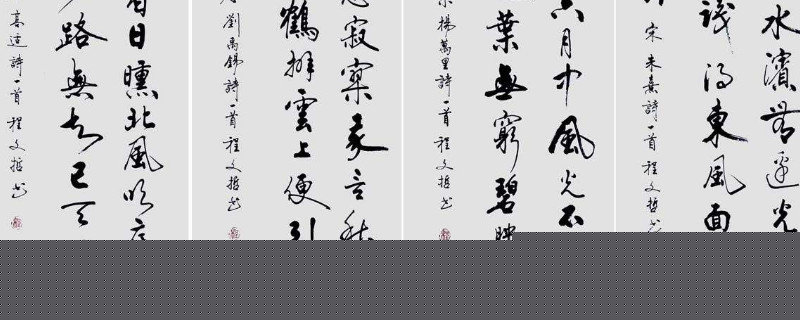 水濱無邊光
識得東風面
宋朱熹詩一首程文哲书
六月中風光不
葉無窮碧映
宋楊萬里詩一首程文哲书
悲寂寥我言秋
鶴排雲上便引
劉禹錫詩一首程文哲书
白日曛北風吹
路無知己天
高適詩一首程文哲书